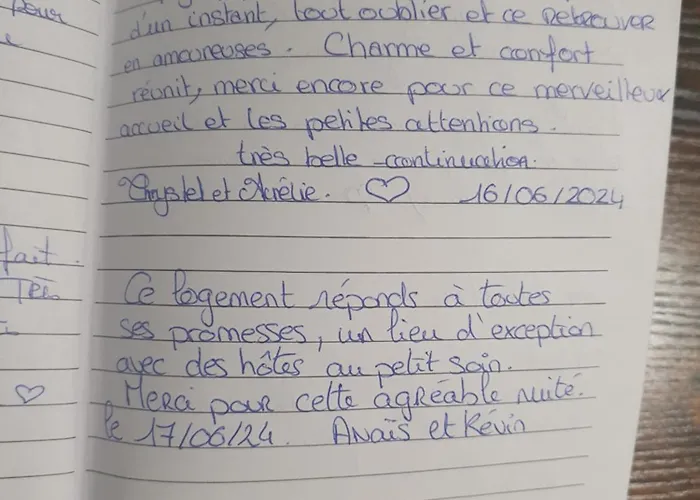 d'un instant, tout oublier et ce retrouver
en amoureuses. Charme et comfort
réunit, merci encore pour ce merveilleux
accueil et les petites attentions.
très belle continuation.
Chrystel et Aurélie. ♡ 16/06/2024
Ce logement réponds à toutes
ses promesses, un lieu d'exception
avec des hôtes au petit soin.
Merci pour cette agréable nuité.
le 17/06/24. Anaïs et Kévin
fait.
♡